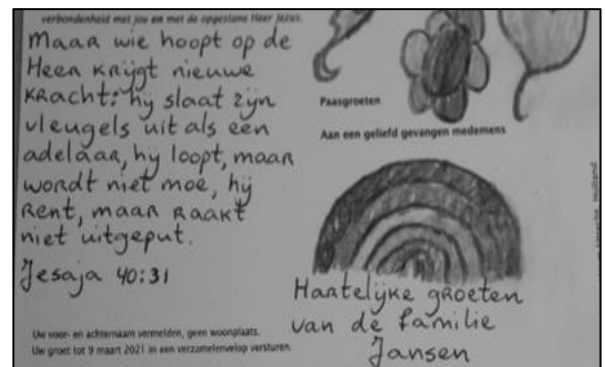 verbondenheid met jou en met de opgestane Heer Jezus.
Maar wie hoopt op de
Heer krijgt nieuwe
kracht: hij slaat zijn
vleugels uit als een
adelaar, hij loopt, maar
wordt niet moe, hij
rent, maar raakt
niet uitgeput.
Jesaja 40:31
Uw voor- en achternaam vermelden, geen woonplaats.
Uw groet tot 9 maart 2021 in een verzamelenvelop versturen.
Paasgroeten
Aan een geliefd gevangen medemens
Hartelijke groeten
van de familie
Jansen